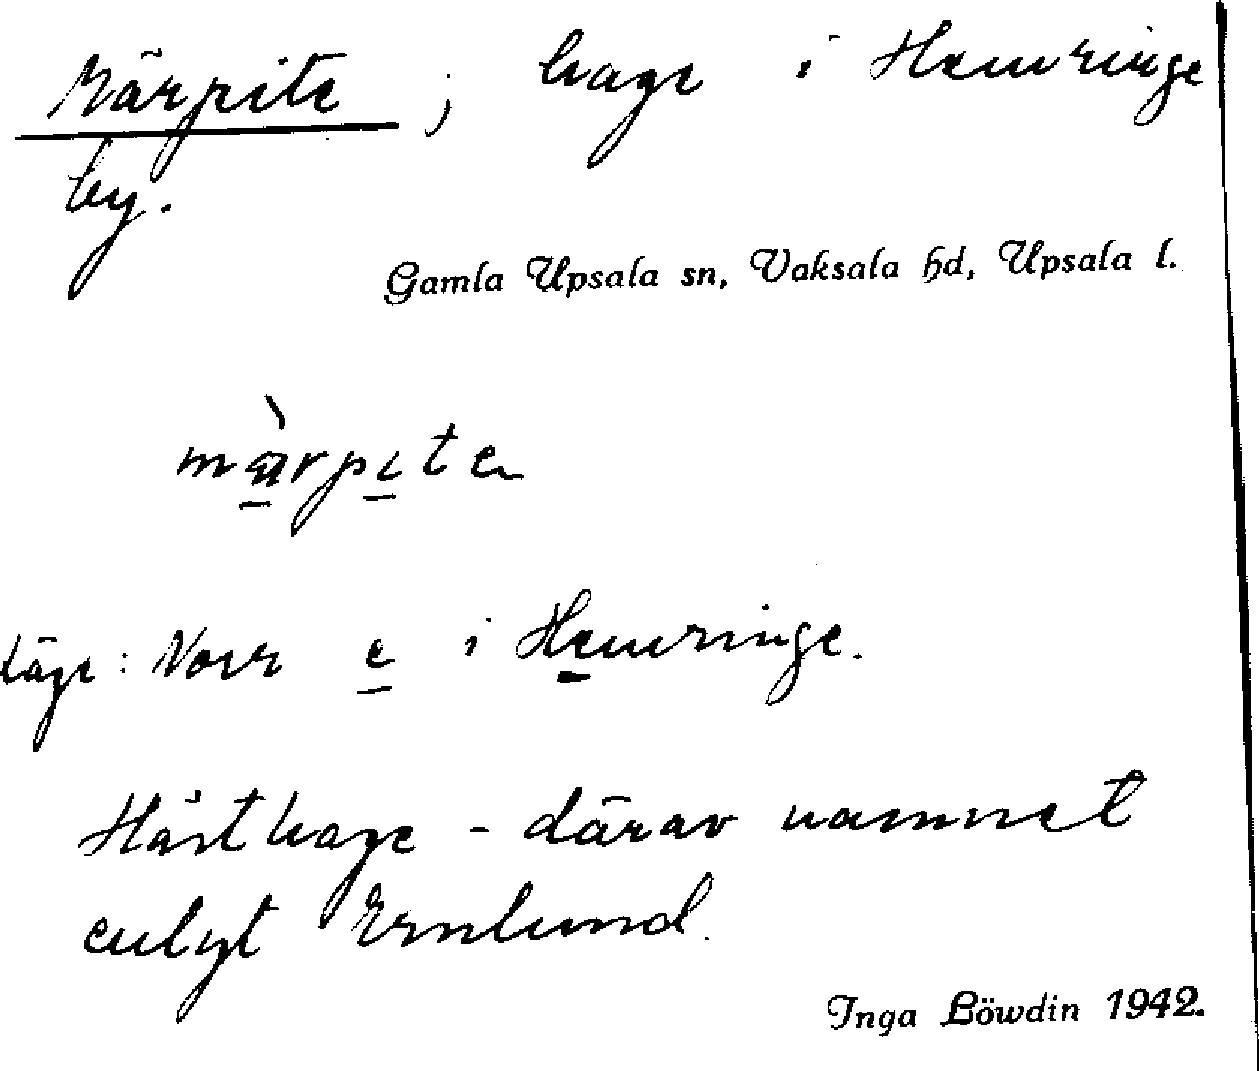 Märpite ; hage i Hemringe
by.
Gamla Upsala sn, Vaksala hd, Upsala l.
màrpite
läge: Norr e i Hemringe.
Hästhage - därav namnet
enligt Ernlund.
Inga Löwdin 1942.